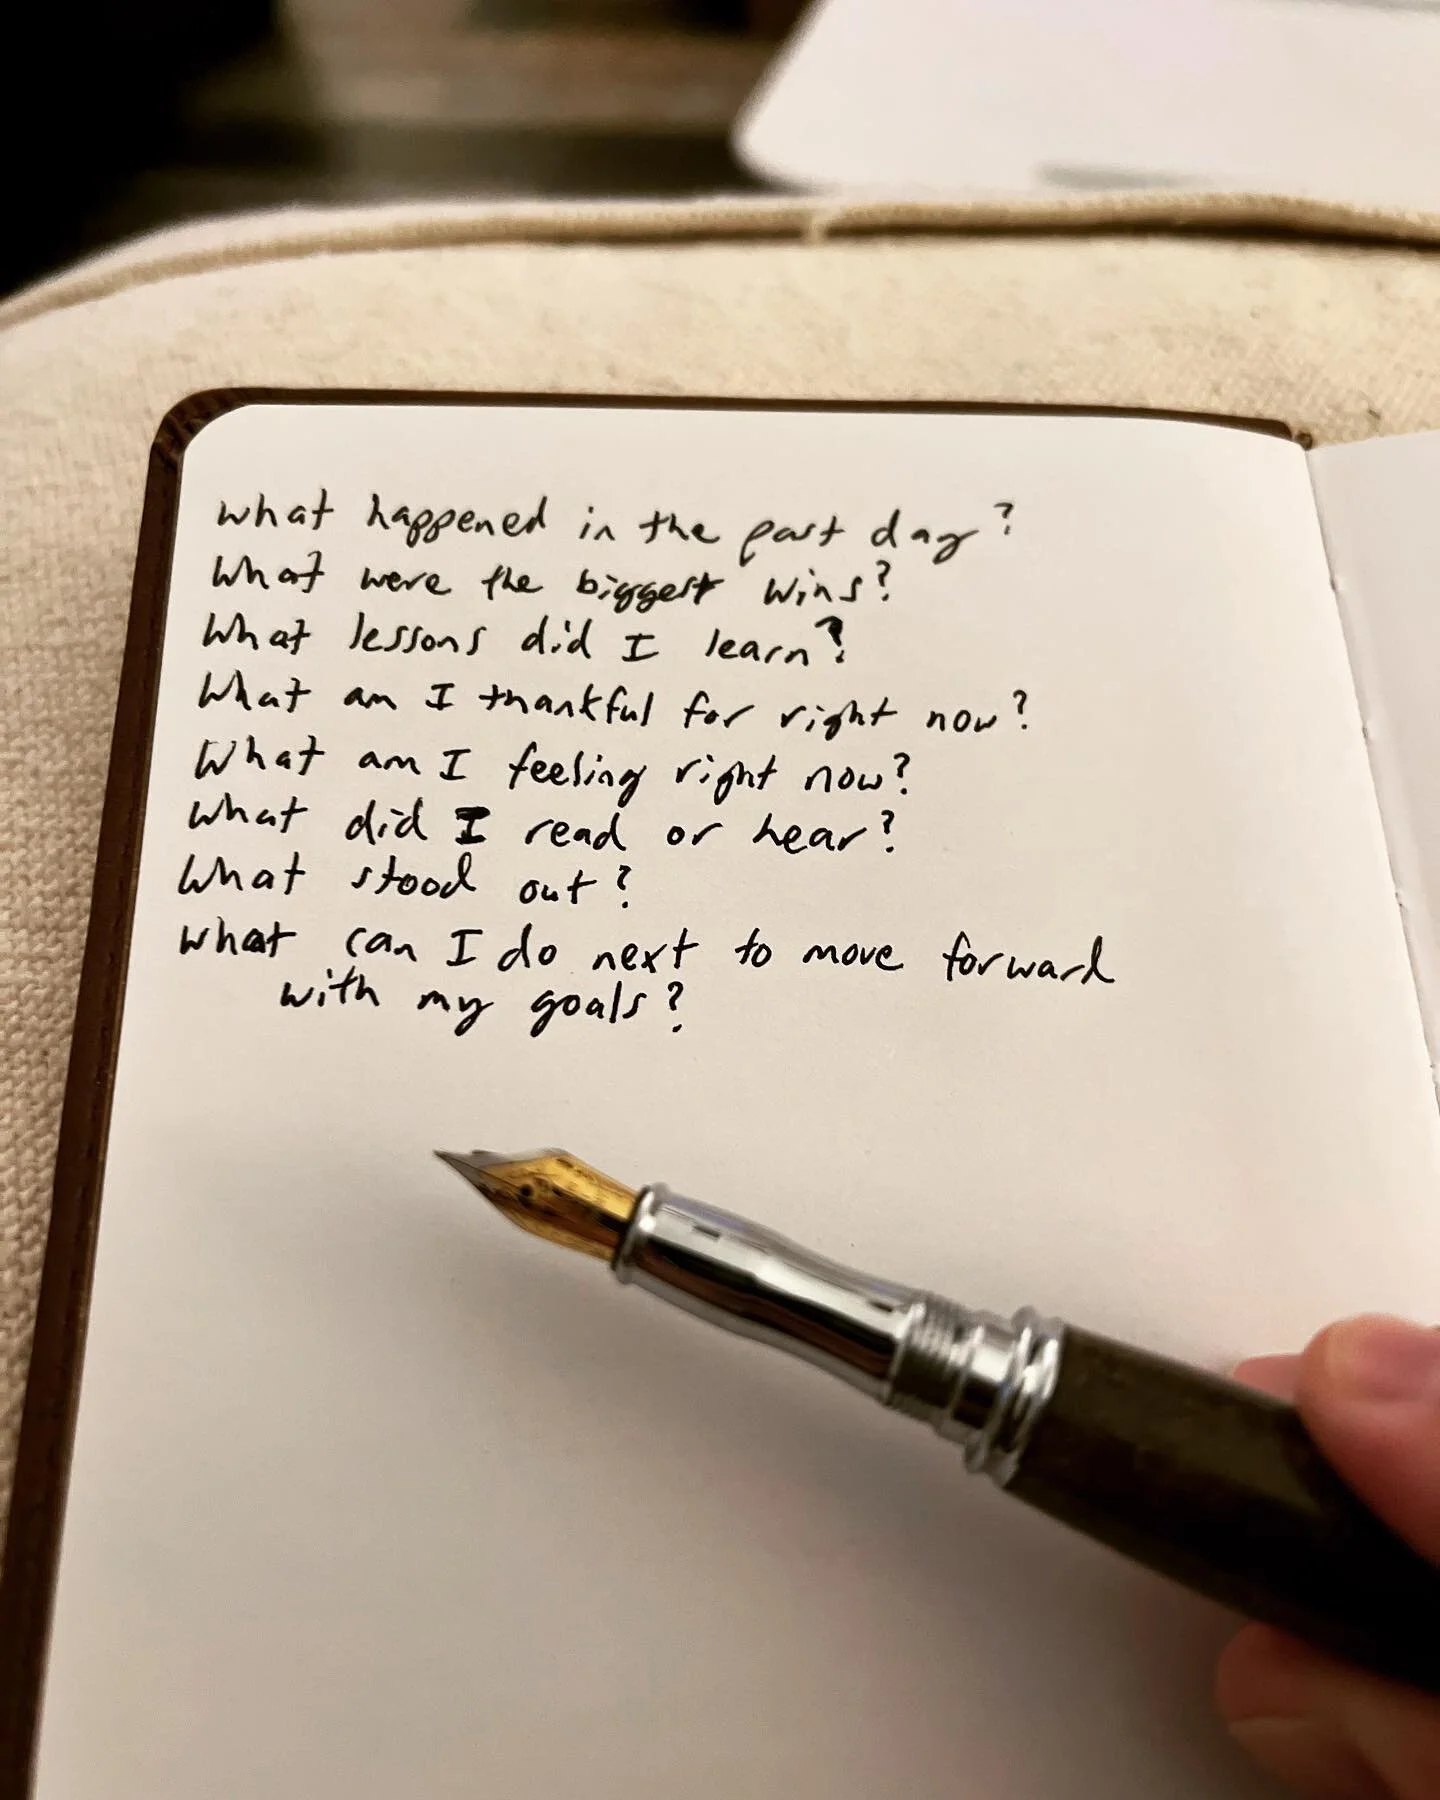 what happened in the past day?
What were the biggest wins?
What lessons did I learn?
What am I thankful for right now?
What am I feeling right now?
What did I read or hear?
What stood out?
what can I do next to move forward
with my goals?